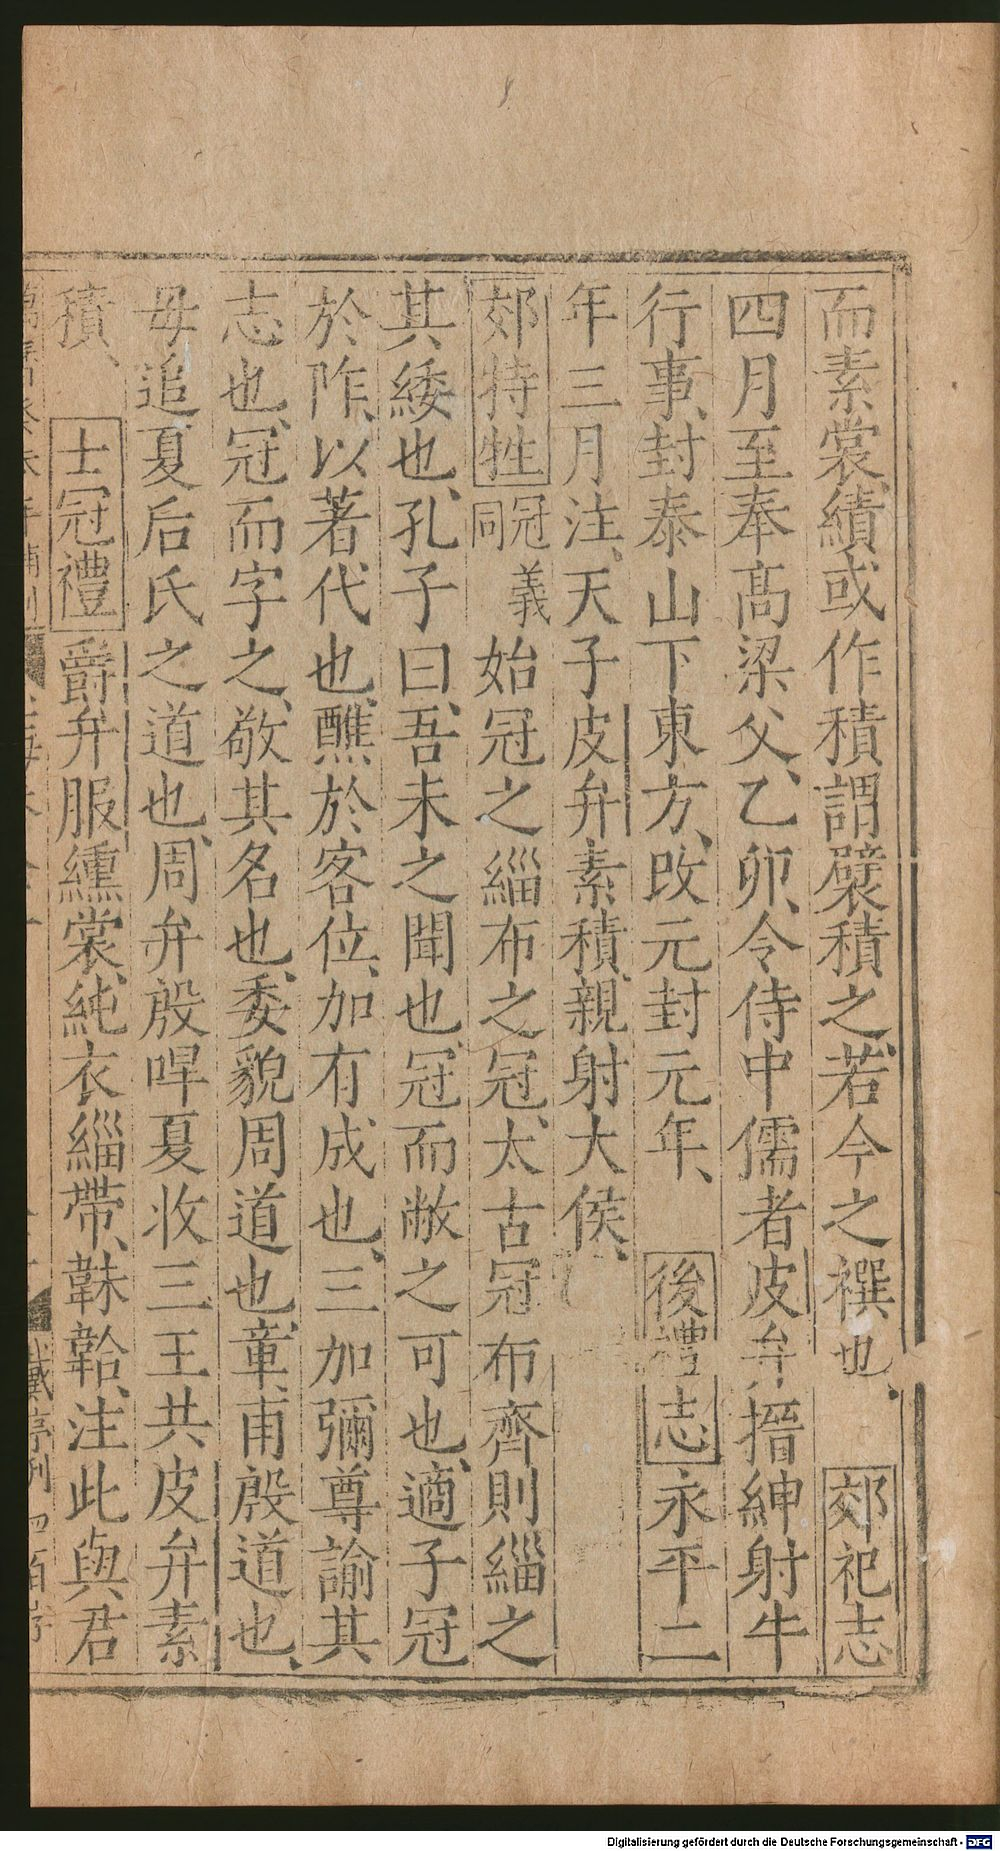 而素裳績或作積謂襞積之若今之襈也、郊祀志
四月至奉髙梁父、乙卯、令侍中儒者皮弁搢紳射牛
行事、封泰山下東方、改元封元年、後禮志永平二
年三月注、天子皮弁素積、親射大侯、
郊特牲冠義同始冠之緇布之冠、太古冠布齊則緇之
其緌也、孔子曰、吾未之聞也、冠而敝之可也、適子冠
於阼、以著代也、醮於客位、加有成也、三加彌尊諭其
志也、冠而字之、敬其名也、委貌周道也、章甫殷道也、
毋追夏后氏之道也、周弁殷哻夏收三王共皮弁素
積、士冠禮爵弁服纁裳、純衣緇帶、韎韐、注此與君
Digitalisierung gefördert durch die Deutsche Forschungsgemeinschaft - DFG